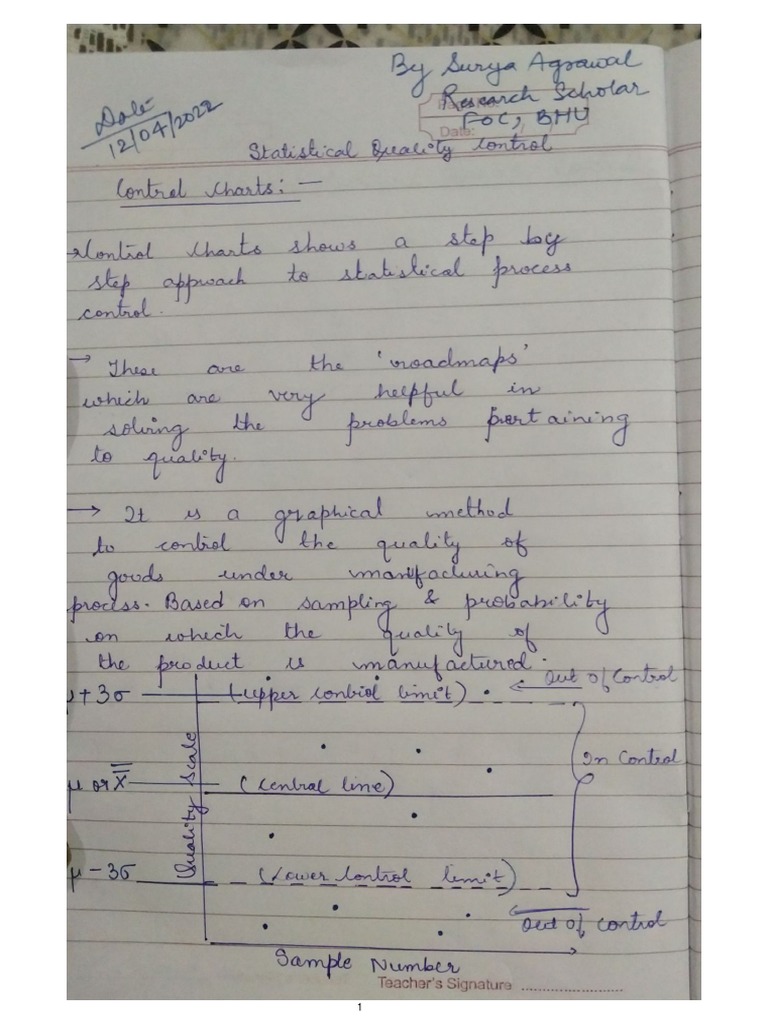 By Surya Agrawal
Research Scholar
FOC, BHU
Date:
Date
12/04/2022
Statistical Quality Control
Control Charts: —
→Control Charts shows a step by
step appoach to statistical process
control.
→ These are the 'roadmaps'
which are very helpful in
solving the problems pertaining
to quality.
→ It is a graphical method
to control the quality of
goods under manufacturing
process. Based on sampling & probability
on which the quality of
the product is manufactured.
μ+3σ (upper control limit) Out of Control
In Control
μ or X̿ (Central line)
Quality Scale
μ-3σ (Lower Control limit)
Out of Control
Sample Number
Teacher's Signature ........................
1